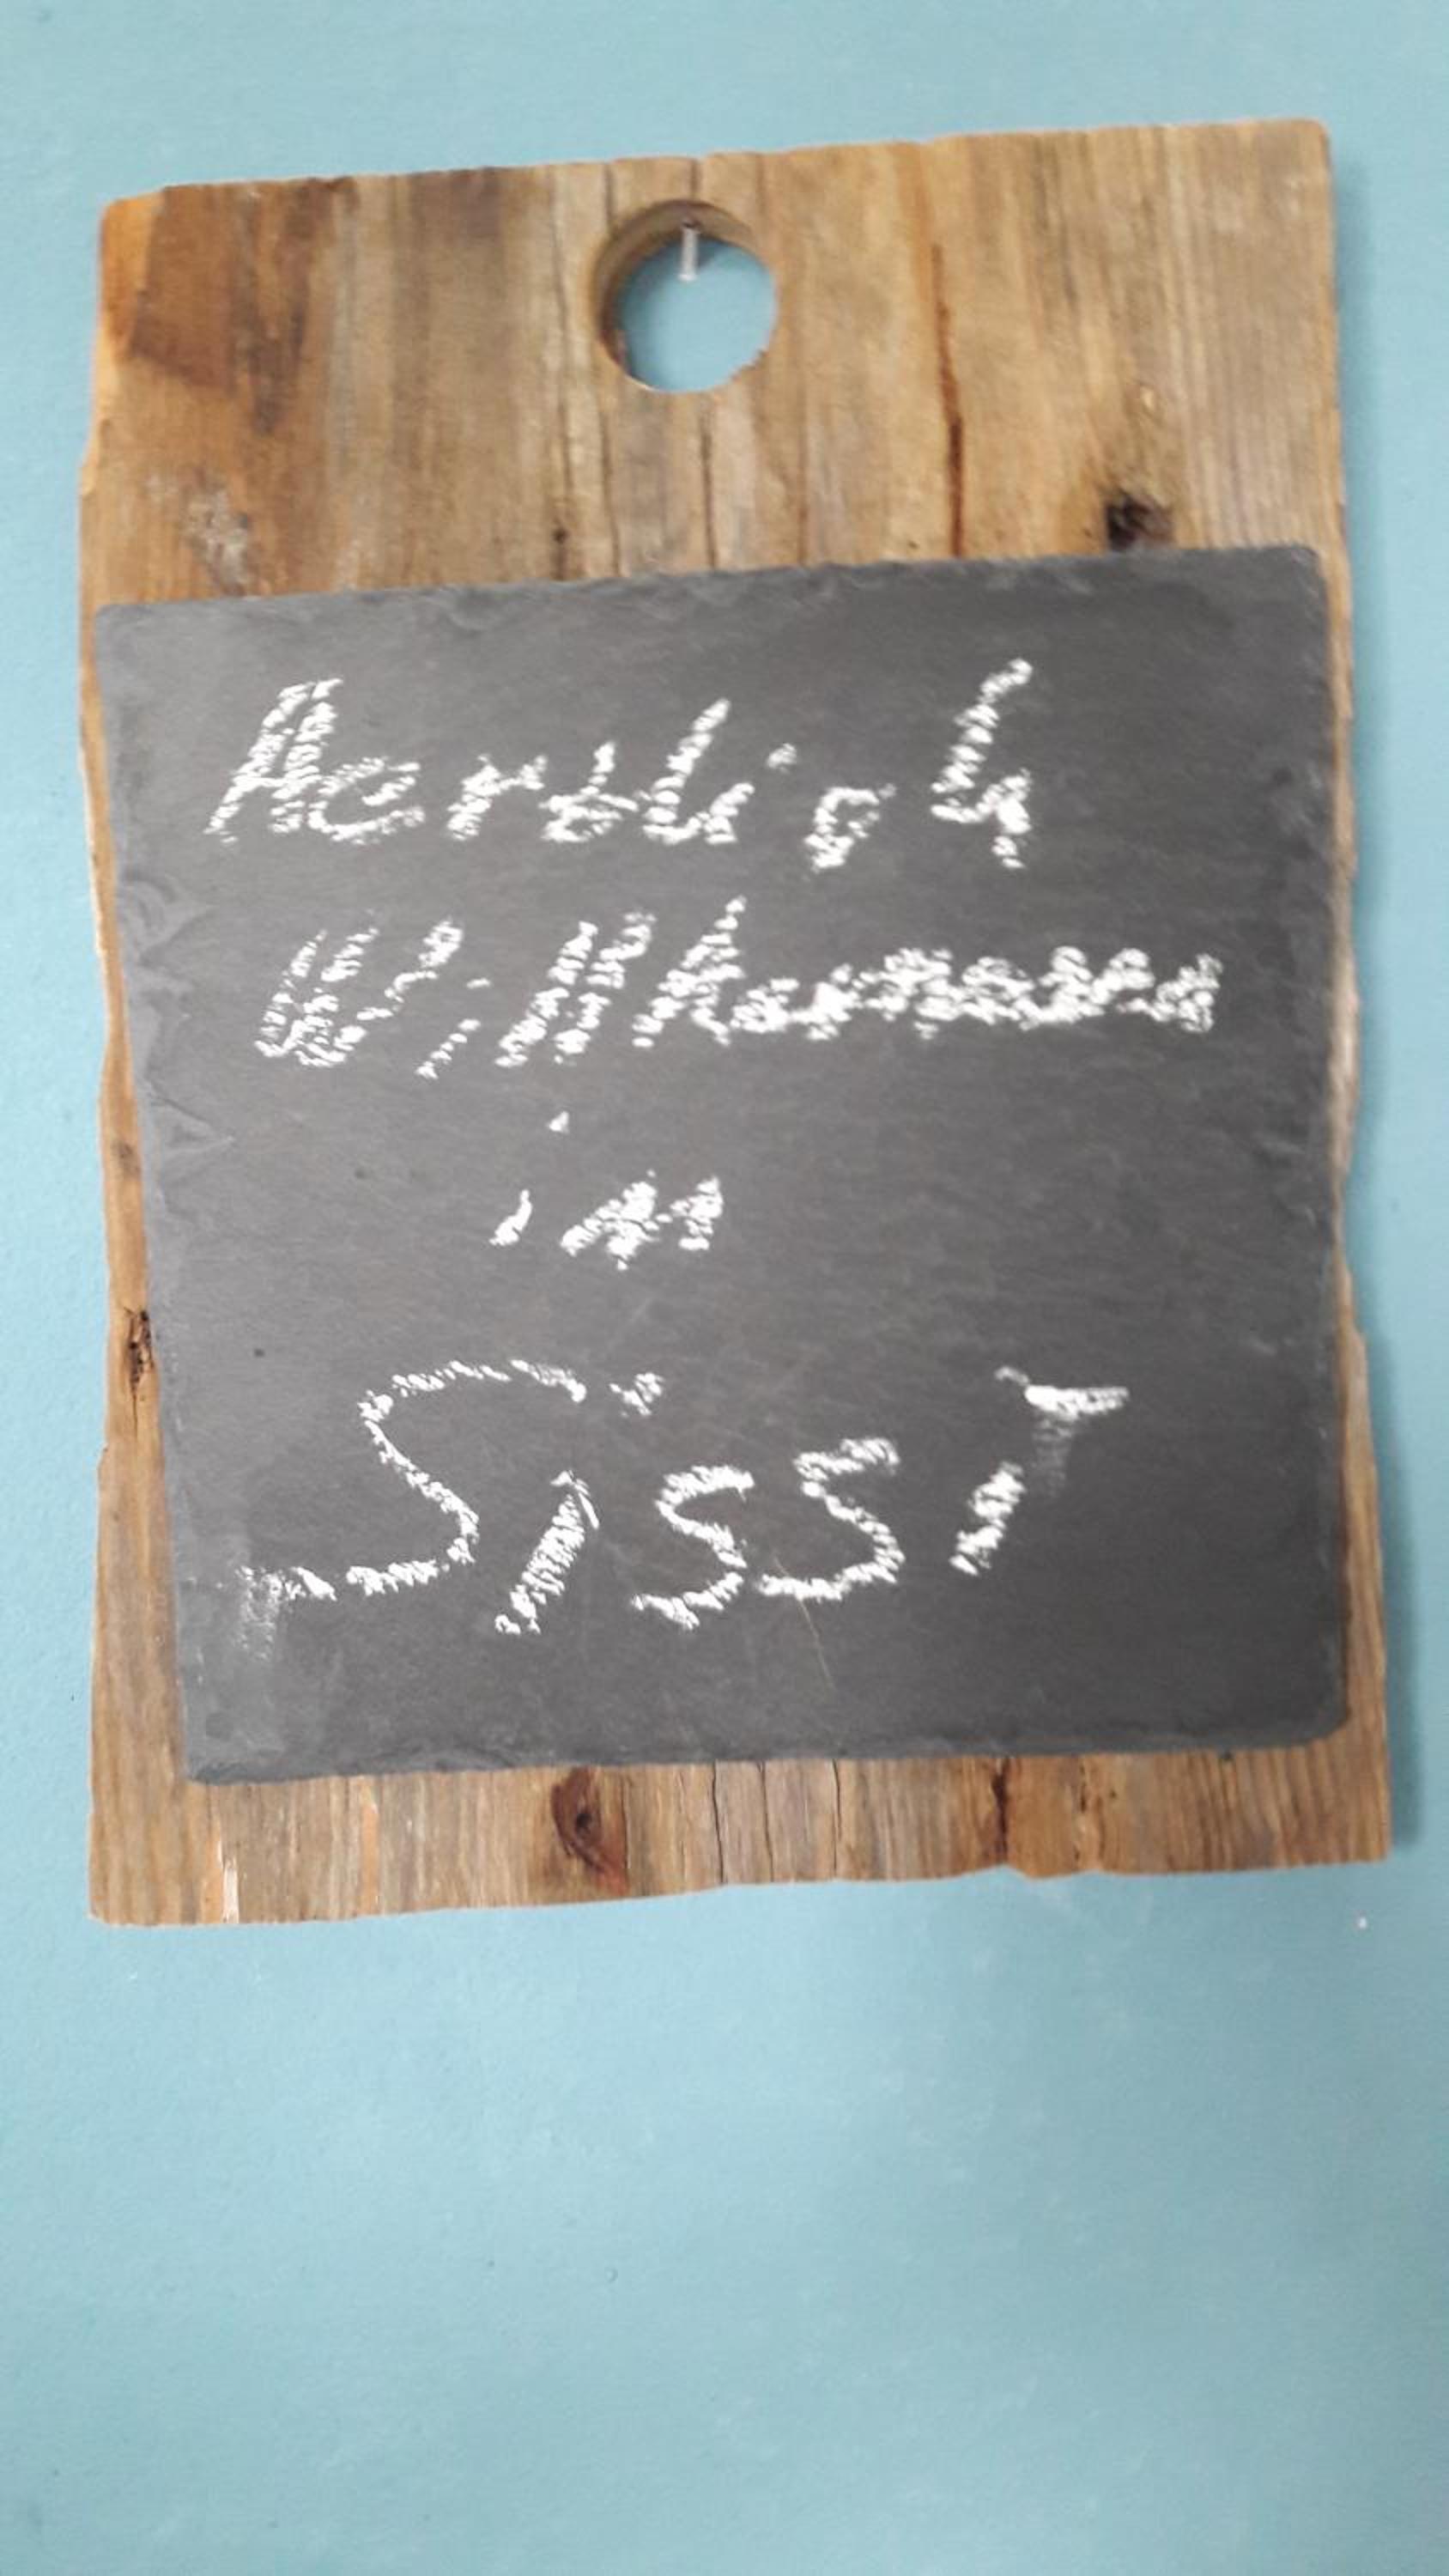 Herzlich
Willkommen
im
SissT